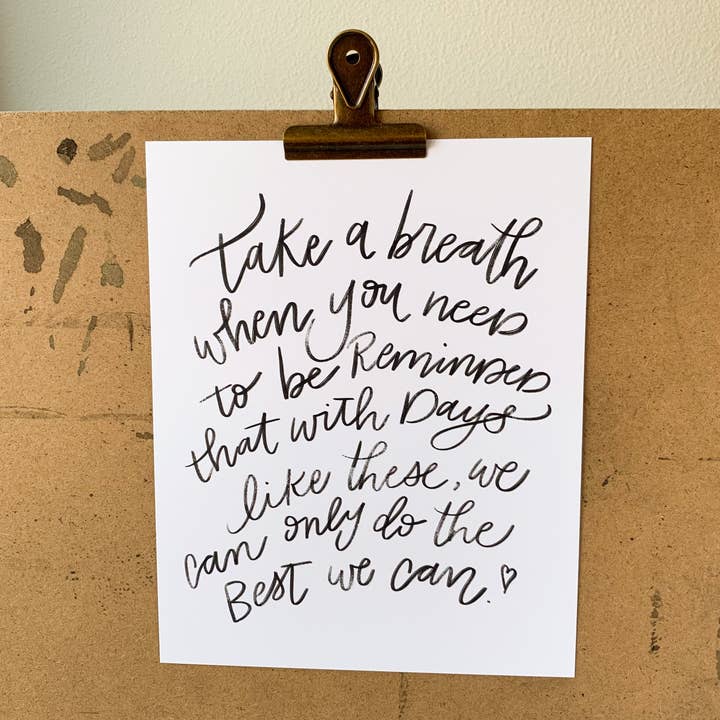 Take a breath
when you need
to be Reminded
that with Days
like these, we
can only do the
Best we can. ♡